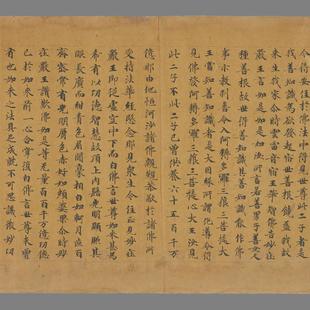 令得安住於佛法中得見世尊此二子者是
我善知識為欲發起宿世善根饒益我故
來生我家尒時雲雷音宿王華智佛告妙莊
嚴王言如是如是如汝所言若善男子善女人
種善根故世世得善知識其善知識能作佛
事示教利喜令入阿耨多羅三藐三菩提大
王當知善知識者是大因緣所謂化導令得
見佛發阿耨多羅三藐三菩提心大王汝見
此二子不此二子已曾供養六十五百千万
億那由他恒河沙諸佛親覲恭敬於諸佛所
受持法華經愍念邪見衆生令住正見妙莊
嚴王即從虛空中下而白佛言世尊如來甚
希有以功德智慧故頂上肉髻光明顯照其
眼長廣而紺青色眉間豪相白如珂月齒白
齊密常有光明脣色赤好如頻婆果尒時妙
莊嚴王讚歎佛如是等无量百千万億功德
已於如來前一心合掌復白佛言世尊未曾
有也如來之法具足成就不可思議微妙功